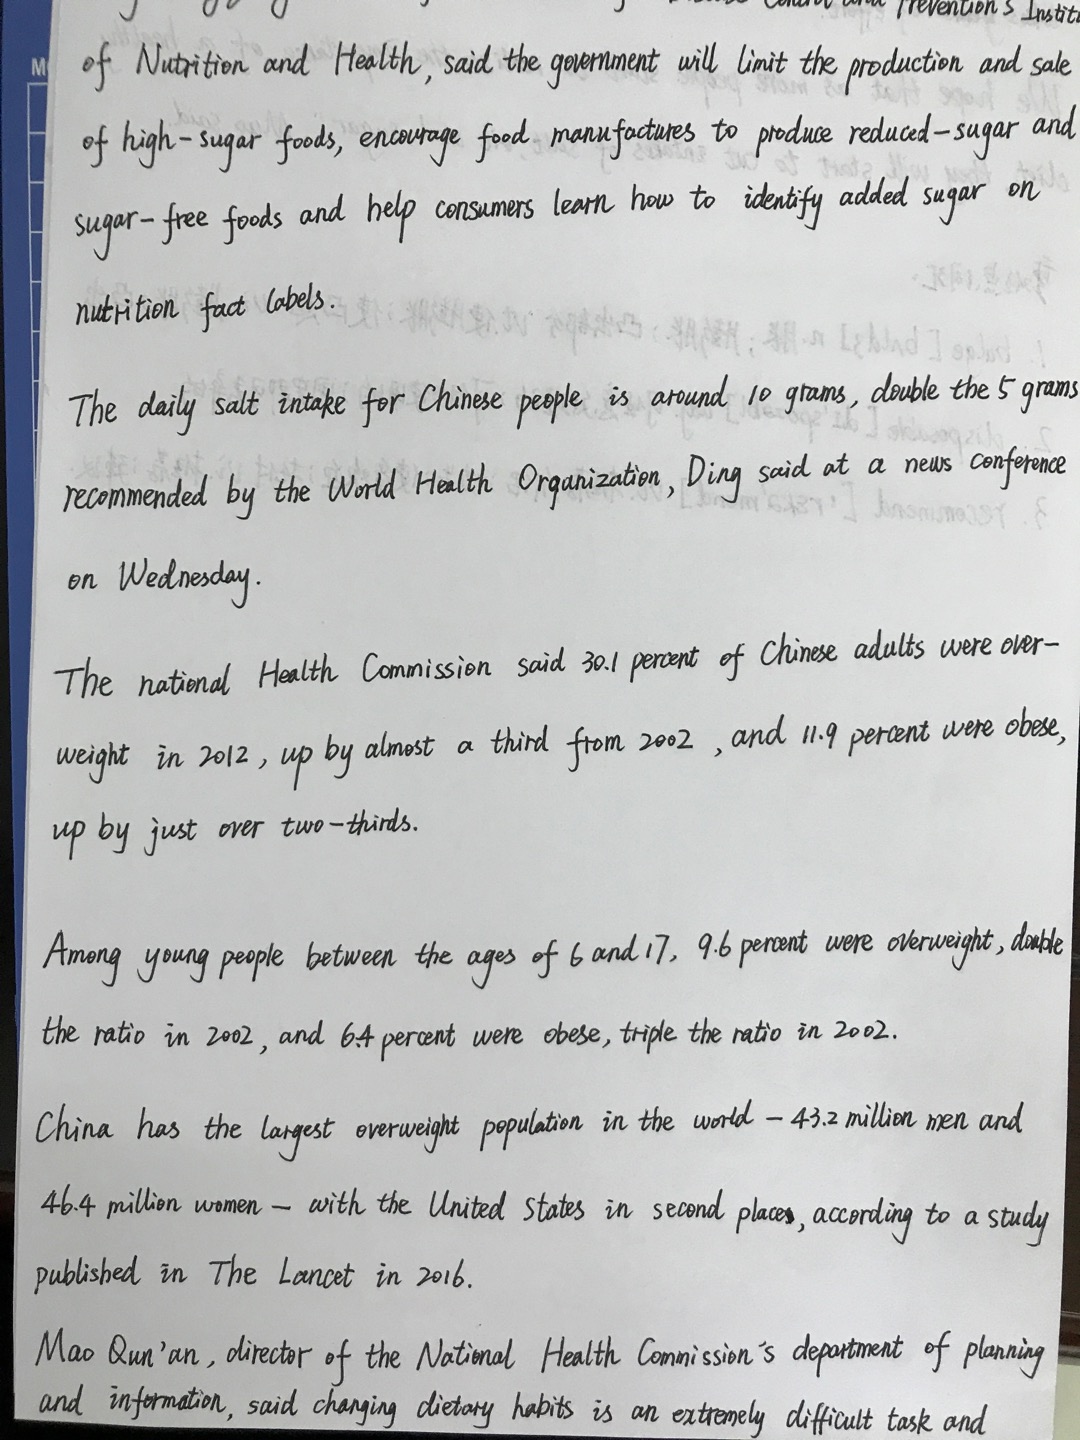 Disease Control and Prevention's Instit
of Nutrition and Health, said the government will limit the production and sale
of high-sugar foods, encourage food manufactures to produce reduced-sugar and
sugar-free foods and help consumers learn how to identify added sugar on
nutrition fact labels.
The daily salt intake for Chinese people is around 10 grams, double the 5 grams
recommended by the World Health Organization, Ding said at a news conference
on Wednesday.
The national Health Commission said 30.1 percent of Chinese adults were over-
weight in 2012, up by almost a third from 2002, and 11.9 percent were obese,
up by just over two-thirds.
Among young people between the ages of 6 and 17, 9.6 percent were overweight, double
the ratio in 2002, and 6.4 percent were obese, triple the ratio in 2002.
China has the largest overweight population in the world - 43.2 million men and
46.4 million women - with the United States in second places, according to a study
published in The Lancet in 2016.
Mao Qun'an, director of the National Health Commission's department of planning
and information, said changing dietary habits is an extremely difficult task and